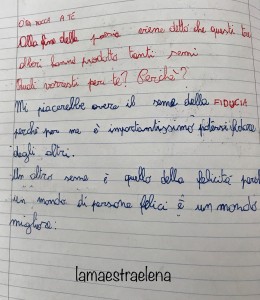 ORA TOCCA A TÉ
Alla fine della poesia viene detto che questi tre
alberi hanno prodotto tanti semi
Quali vorresti per te? Perchè?
Mi piacerebbe avere il seme della FIDUCIA
perché per me è importantissimo potersi fidare
degli altri.
Un altro seme è quello della felicità perché
un mondo di persone felici è un mondo
migliore.
lamaestraelena